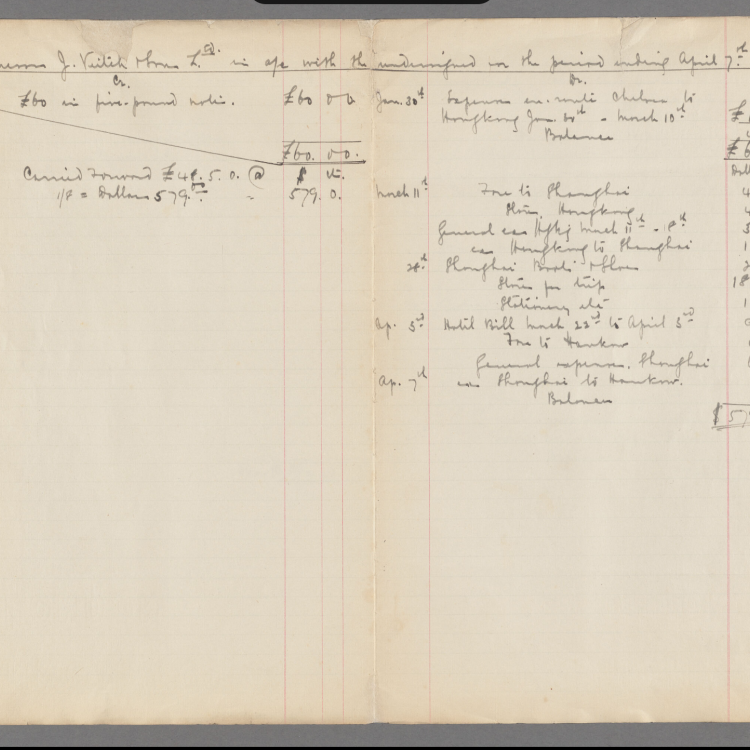 J. Veitch & Sons Ld. in a/c with the undersigned for the period ending April 7th
Cr.
£60 in five-pound notes. £60 00
£60. 00.
Carried Forward £48. 5. 0. @ $ cts.
= Dollars 579.00 579. 0.
Dr.
Jan. 30th Expenses en-route Chelsea to
Hongkong Jan. 30th - March 10th
Balance
March 11th Fare to Shanghai
Stores, Hongkong
General exs Hgkg March 11th - 18th
exs Hongkong to Shanghai
28th Shanghai Boots & Shoes
Stores for trip
Stationery etc
Ap. 3rd Hotel Bill March 22nd to April 3rd
Fare to Hankow
General expenses. Shanghai
Ap. 7th exs Shanghai to Hankow.
Balance